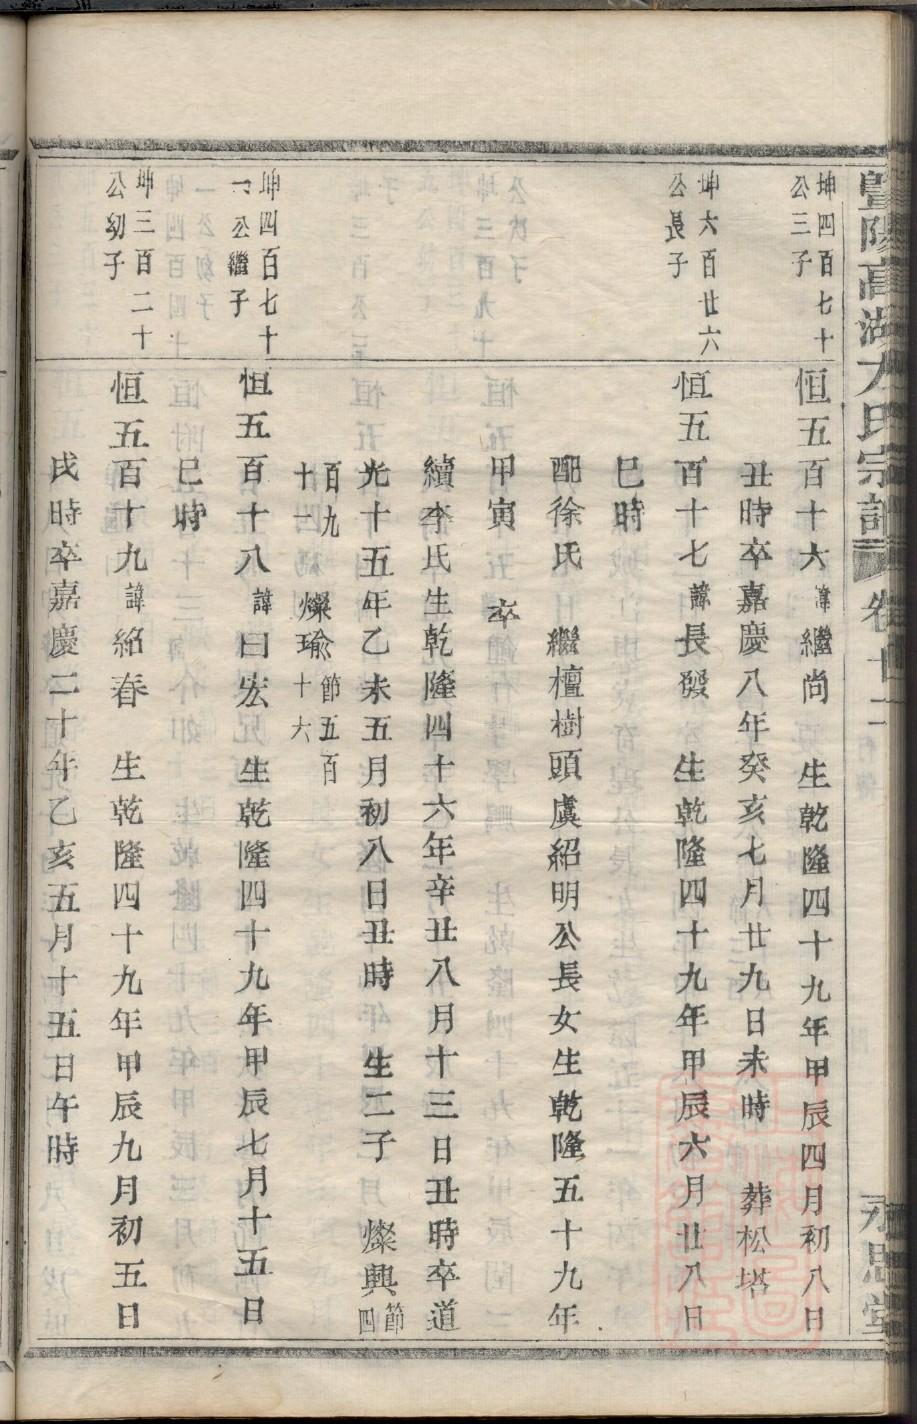 暨陽高湖方氏宗譜 卷廿二 永思堂
坤四百七十
公三子
恒五百十六諱繼尚 生乾隆四十九年甲辰四月初八日
丑時卒嘉慶八年癸亥七月廿九日未時 葬松塔
坤六百廿六
公長子
恒五百十七諱長發 生乾隆四十九年甲辰六月廿八日
巳時
配徐氏 繼檀樹頭虞紹明公長女生乾隆五十九年
甲寅 卒
續李氏生乾隆四十六年辛丑八月十三日丑時卒道
光十五年乙未五月初八日丑時 生二子 燦興節四
百九十 燦瑜節五百十六
坤四百七十
一公繼子
恒五百十八諱曰宏 生乾隆四十九年甲辰七月十五日
巳時
坤三百二十
公幼子
恒五百十九諱紹春 生乾隆四十九年甲辰九月初五日
戌時卒嘉慶二十年乙亥五月十五日午時